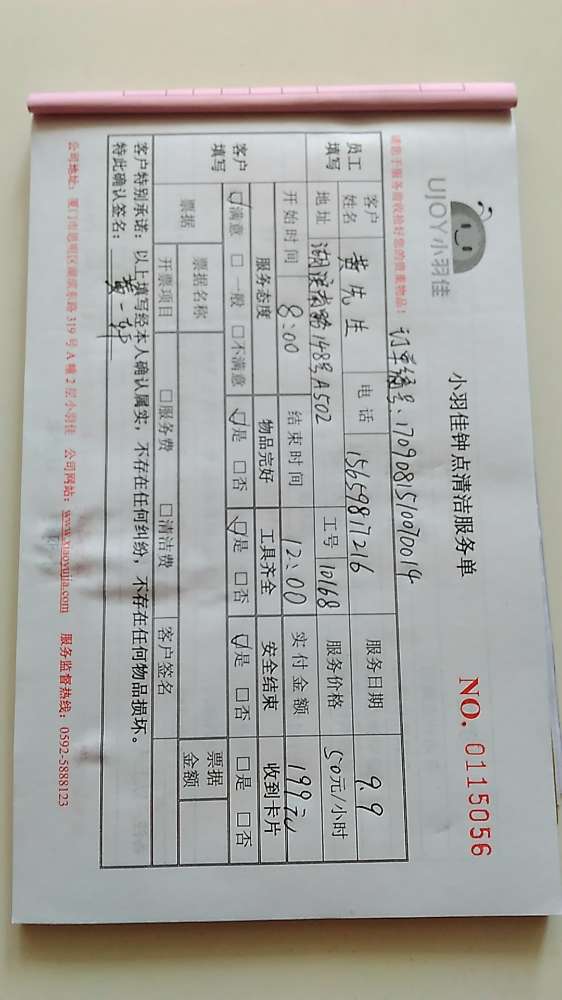 UJOY小羽佳
小羽佳钟点清洁服务单
NO. 0115056
请您于服务前收捡好您的贵重物品!
订单编号: 1709081510070014
员工填写
客户姓名 黄先生 电话 15659817216 服务日期 9.9
地址 湖滨南路148号A502 工号 10168 服务价格 50元/小时
开始时间 8:00 结束时间 12:00 实付金额 199元
客户填写
服务态度 物品完好 工具齐全 安全结束 收到卡片
☑满意 □一般 □不满意 ☑是 □否 ☑是 □否 ☑是 □否 □是 □否
票据 票据名称 □服务费 □清洁费 客户签名 票据金额
开票项目
客户特别承诺:以上填写经本人确认属实,不存在任何纠纷,不存在任何物品损坏。
特此确认签名:
公司地址:厦门市思明区湖滨东路319号A幢2层小羽佳 公司网站:www.xiaoyujia.com 服务监督热线:0592-5888123